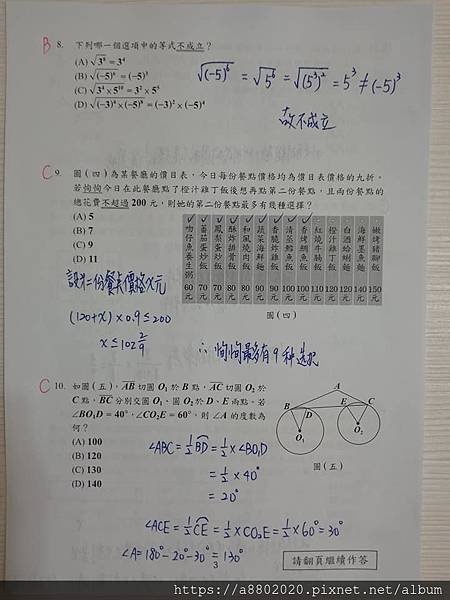 B 8. 下列哪一個選項中的等式不成立?
(A) √3⁸ = 3⁴
(B) √(-5)⁶ = (-5)³
(C) √3⁴×5¹⁰ = 3²×5⁵
(D) √(-3)⁴×(-5)⁸ = (-3)²×(-5)⁴
√(-5)⁶ = √5⁶ = √(5³)² = 5³ ≠ (-5)³
故不成立
C 9. 圖(四)為某餐廳的價目表,今日每份餐點價格均為價目表價格的九折。
若恂恂今日在此餐廳點了橙汁雞丁飯後想再點第二份餐點,且兩份餐點的
總花費不超過 200 元,則她的第二份餐點最多有幾種選擇?
(A) 5
(B) 7
(C) 9
(D) 11
吻仔魚養生粥 60元
番茄蛋炒飯 70元
鳳梨蛋炒飯 70元
酥炸排骨飯 80元
和風燒肉飯 80元
蔬菜海鮮麵 80元
香脆炸雞飯 90元
清蒸鱈魚飯 100元
香烤鯛魚飯 100元
紅燒牛腩飯 110元
橙汁雞丁飯 120元
白酒蛤蜊麵 120元
海鮮墨魚麵 140元
嫩烤豬腳飯 150元
圖(四)
設第二份餐點價格x元
(120+x)×0.9≤200
x≤102 2/9
∴恂恂最多有9種選擇
C 10. 如圖(五),AB 切圓 O₁ 於 B 點,AC 切圓 O₂ 於
C 點,BC 分別交圓 O₁、圓 O₂ 於 D、E 兩點。若
∠BO₁D = 40°,∠CO₂E = 60°,則 ∠A 的度數為
何?
(A) 100
(B) 120
(C) 130
(D) 140
A
B D E C
O₁ O₂
圖(五)
∠ABC = ½BD = ½×∠BO₁D
= ½×40°
= 20°
∠ACE = ½CE = ½×CO₂E = ½×60° = 30°
∠A = 180°-20°-30° = 130°
3
請翻頁繼續作答
https://a8802020.pixnet.net/album